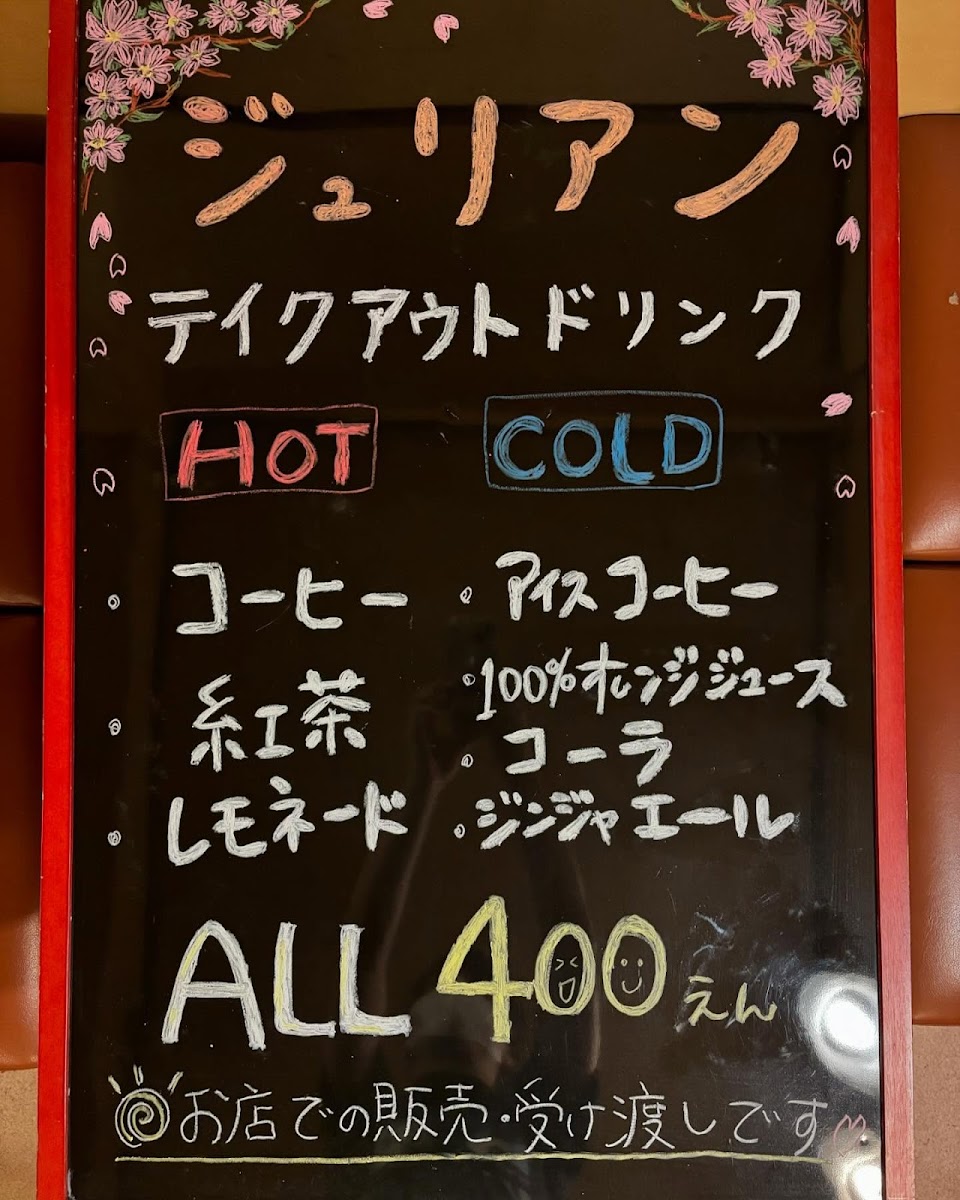 ジュリアン
テイクアウトドリンク
HOT
COLD
・コーヒー
・紅茶
・レモネード
・アイスコーヒー
・100%オレンジジュース
・コーラ
・ジンジャエール
ALL 400えん
お店での販売・受け渡しです